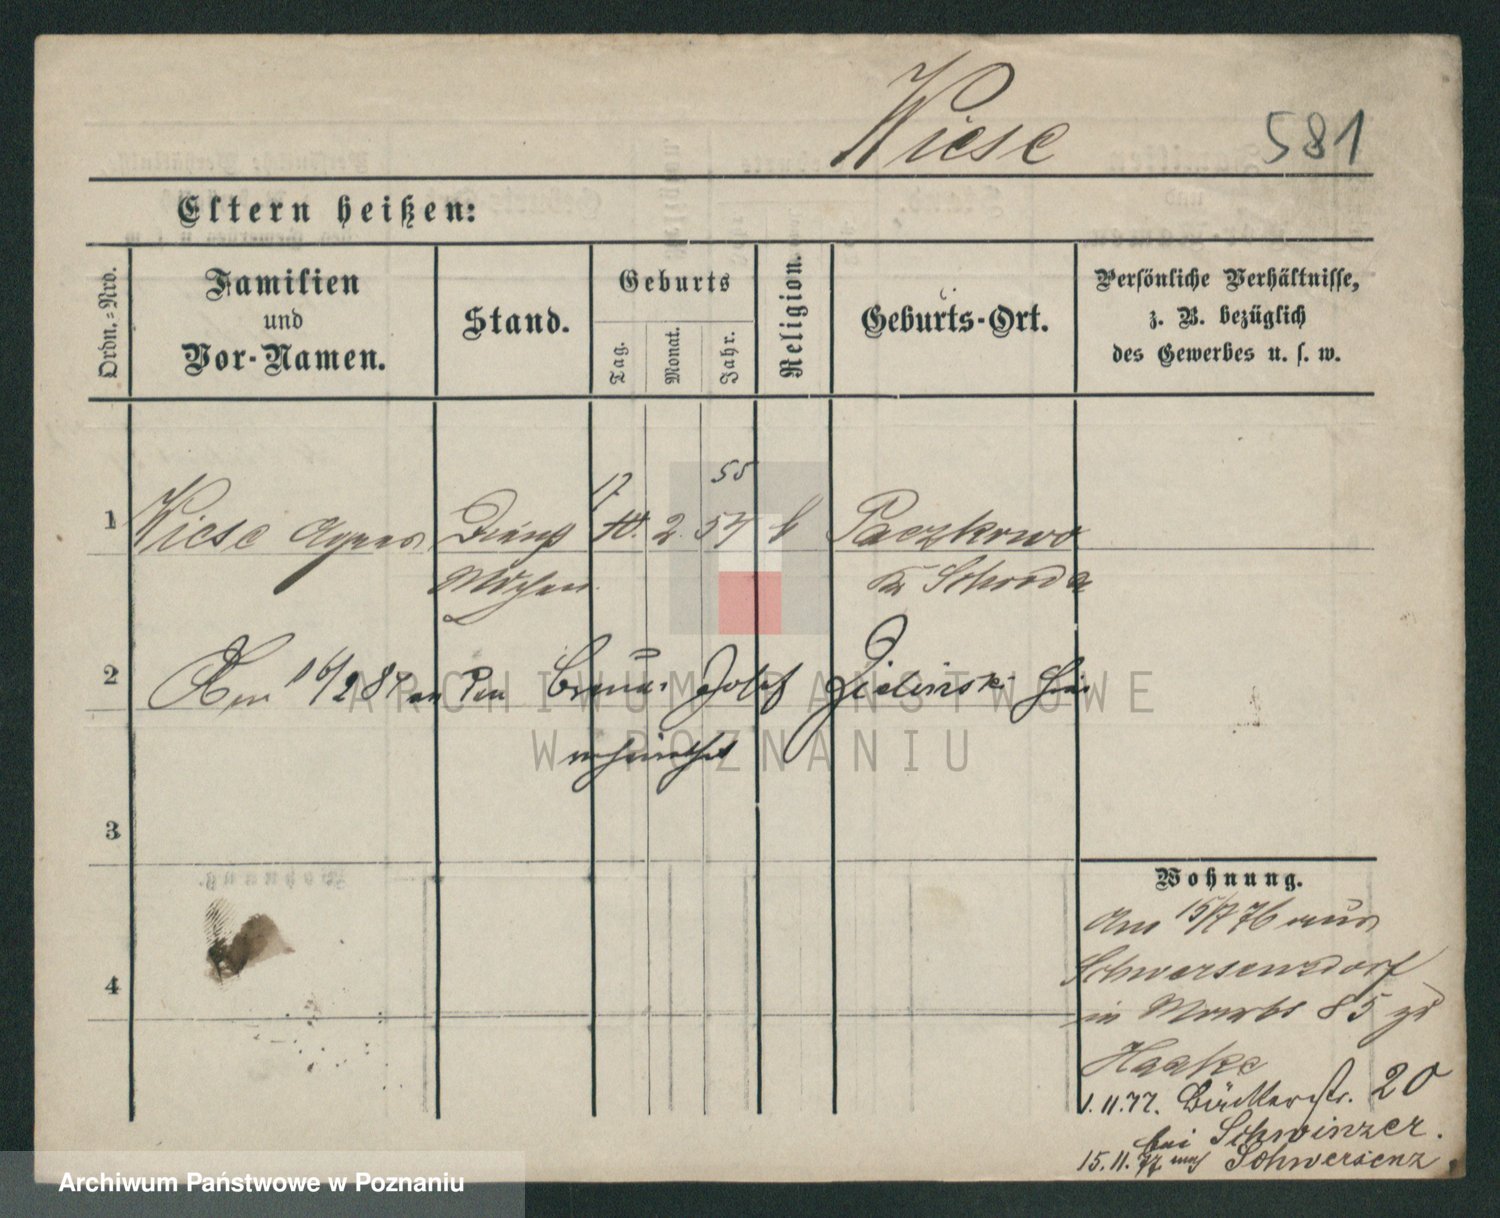 Wiese 581
Eltern heißen:
Ordn.-Nro.
Familien
und
Vor-Namen.
Stand.
Geburts
Tag.
Monat.
Jahr.
Religion.
Geburts-Ort.
Persönliche Verhältnisse,
z. B. bezüglich
des Gewerbes u. s. w.
17. 55
1 Wiese Agnes 2. 57 k Paczkowo
Schroda
2 Am 16/2 81 an den Josef Zielinski hier
3
Wohnung.
Am 15/7 76 aus
Schwersenzdorf
4
in 85 zu
Haake
1. 11. 77. Büttelstr. 20
bei Schwinzer.
15. 11. 77 nach Schwersenz
ARCHIWUM PAŃSTWOWE
W POZNANIU
Archiwum Państwowe w Poznaniu